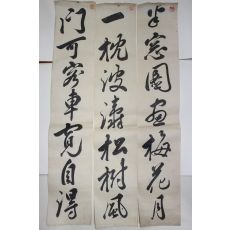 半窓圖畫梅花月
一枕波濤松樹風
門可容車寬自得